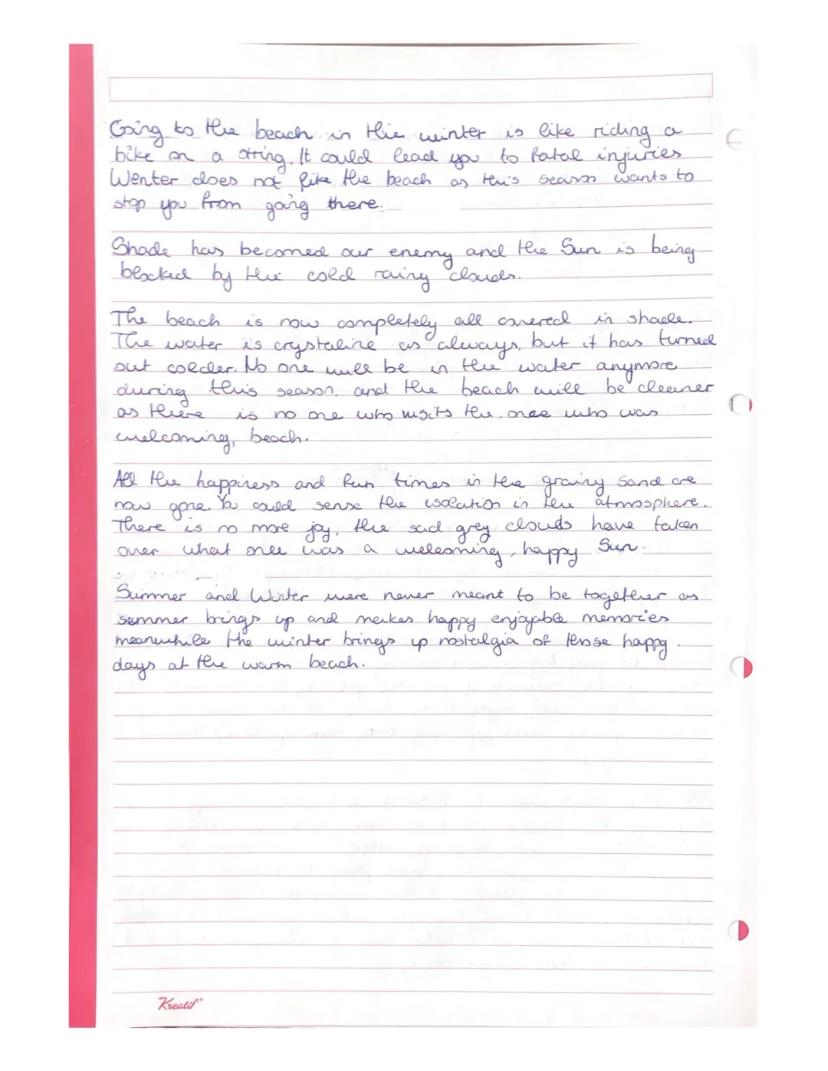 Going to the beach in the winter is like riding a
bike on a string. It could lead you to fatal injuries
Wenter does not like the beach as this season wants to
stop you from going there.
Shade has becomed our enemy and the Sun is being
blocked by the cold rainy clouds.
The beach is now completely all covered in shade.
The water is crystaline as always, but it has turned
out colder. No one will be in the water anymore
during this season, and the beach will be cleaner
as there is no one who visits the once who was
welcoming, beach.
All the happiness and fun times in the grainy sand are
now gone. You could sense the isolation in the atmosphere.
There is no more joy, the sad grey clouds have taken
over what once was a welcoming, happy Sun.
Summer and Winter were never meant to be together as
summer brings up and makes happy enjoyable memories
meanwhile the winter brings up nostalgia of those happy
days at the warm beach.
Kreatif